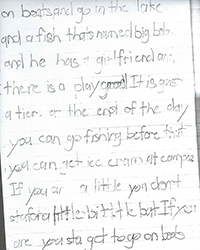 on boats and go in the lake
and a fish that's named big bob
and he has a girlfriend and
there is a play It is gust
a tier. at the end of the day
you can go fishing before that
you can get ice cram at campose
If you ar a little you don't
sta for a little bit but If you
are you sta get to go on boats